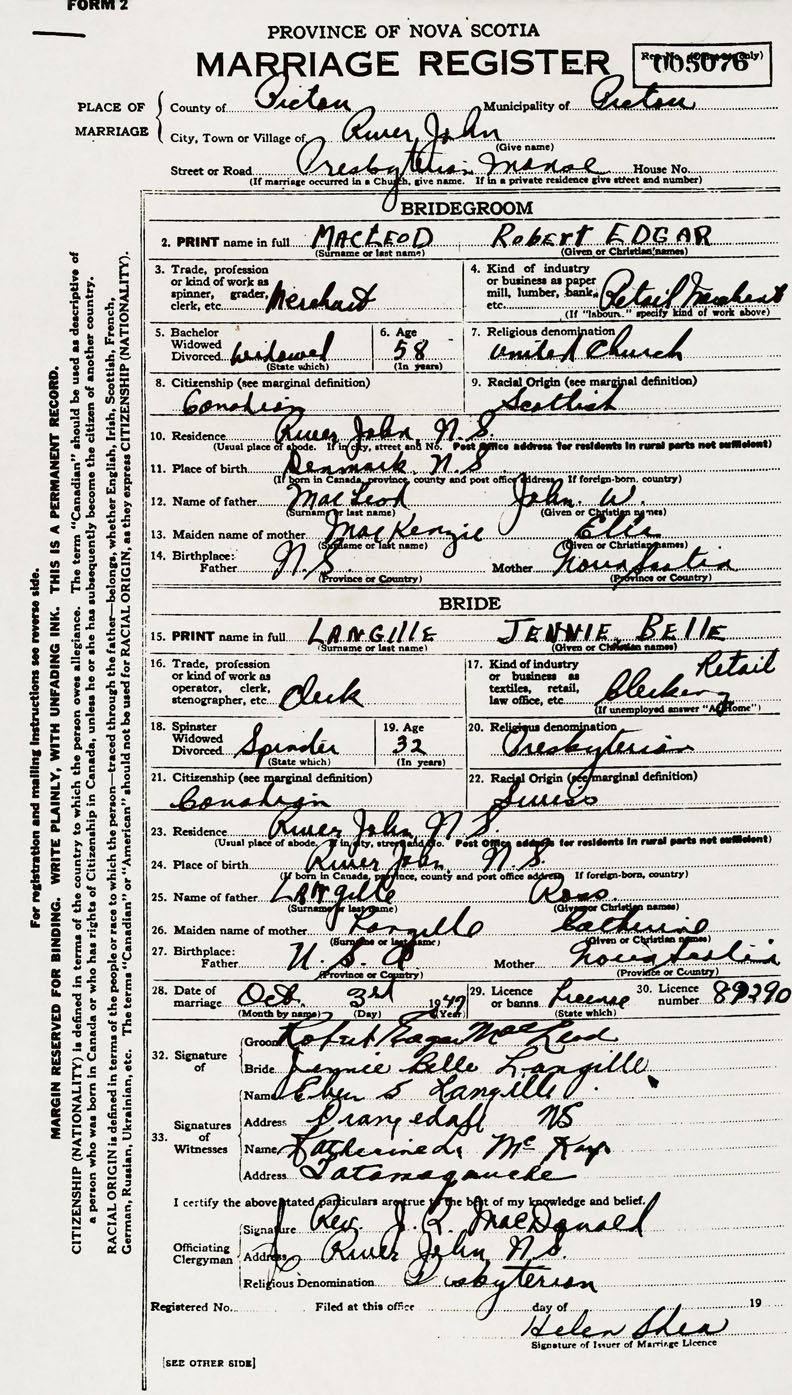 FORM 2
PROVINCE OF NOVA SCOTIA
MARRIAGE REGISTER
005076
PLACE OF MARRIAGE
County of Pictou Municipality of Pictou
City, Town or Village of River John
(Give name)
Street or Road Presbyterian Manse House No.
(If marriage occurred in a Church, give name. If in a private residence give street and number)
BRIDEGROOM
2. PRINT name in full MACLEOD ROBERT EDGAR
(Surname or last name) (Given or Christian names)
3. Trade, profession or kind of work as spinner, grader, clerk, etc. Merchant
4. Kind of industry or business as paper mill, lumber, bank, etc. Retail Merchant
(If "labour," specify kind of work above)
5. Bachelor Widowed Divorced Widowed
(State which)
6. Age 58
(In years)
7. Religious denomination United Church
8. Citizenship (see marginal definition) Canadian
9. Racial Origin (see marginal definition) Scottish
10. Residence River John, N.S.
(Usual place of abode. If in city, street and No. Post Office address for residents in rural parts not sufficient)
11. Place of birth Denmark, N.S.
(If born in Canada, province, county and post office address. If foreign-born, country)
12. Name of father MacLeod John W.
(Surname or last name) (Given or Christian names)
13. Maiden name of mother MacKenzie Ella
(Surname or last name) (Given or Christian names)
14. Birthplace: Father N.S. Mother Nova Scotia
(Province or Country) (Province or Country)
BRIDE
15. PRINT name in full LANGILLE JENNIE BELLE
(Surname or last name) (Given or Christian names)
16. Trade, profession or kind of work as operator, clerk, stenographer, etc. Clerk
17. Kind of industry or business as textiles, retail, law office, etc. Retail Clerking
(If unemployed answer "At Home")
18. Spinster Widowed Divorced Spinster
(State which)
19. Age 32
(In years)
20. Religious denomination Presbyterian
21. Citizenship (see marginal definition) Canadian
22. Racial Origin (see marginal definition) Swiss
23. Residence River John N.S.
(Usual place of abode. If in city, street and No. Post Office address for residents in rural parts not sufficient)
24. Place of birth River John, N.S.
(If born in Canada, province, county and post office address. If foreign-born, country)
25. Name of father LANgille Ross
(Surname or last name) (Given or Christian names)
26. Maiden name of mother Langille Catherine
(Surname or last name) (Given or Christian names)
27. Birthplace: Father U.S.A. Mother Nova Scotia
(Province or Country) (Province or Country)
28. Date of marriage Oct. 3rd 1947
(Month by name) (Day) (Year)
29. Licence or banns License
(State which)
30. Licence number 89290
32. Signature of
Groom Robert Edgar MacLeod
Bride Jennie Belle Langille
33. Signatures of Witnesses
Name Eben S Langille
Address Orangedale NS
Name Katherine McKay
Address Tatamagouche
I certify the above stated particulars are true to the best of my knowledge and belief.
Officiating Clergyman
Signature Rev. J. R. MacDonald
Address River John N.S.
Religious Denomination Presbyterian
Registered No. Filed at this office day of 19
Helen Shea
Signature of Issuer of Marriage Licence
[SEE OTHER SIDE]
For registration and mailing instructions see reverse side.
MARGIN RESERVED FOR BINDING. WRITE PLAINLY, WITH UNFADING INK. THIS IS A PERMANENT RECORD.
CITIZENSHIP (NATIONALITY) is defined in terms of the country to which the person owes allegiance. The term "Canadian" should be used as descriptive of
a person who was born in Canada or who has rights of Citizenship in Canada, unless he or she has subsequently become the citizen of another country.
RACIAL ORIGIN is defined in terms of the people or race to which the person—traced through the father—belongs, whether English, Irish, Scottish, French,
German, Russian, Ukrainian, etc. The terms "Canadian" or "American" should not be used for RACIAL ORIGIN, as they express CITIZENSHIP (NATIONALITY).